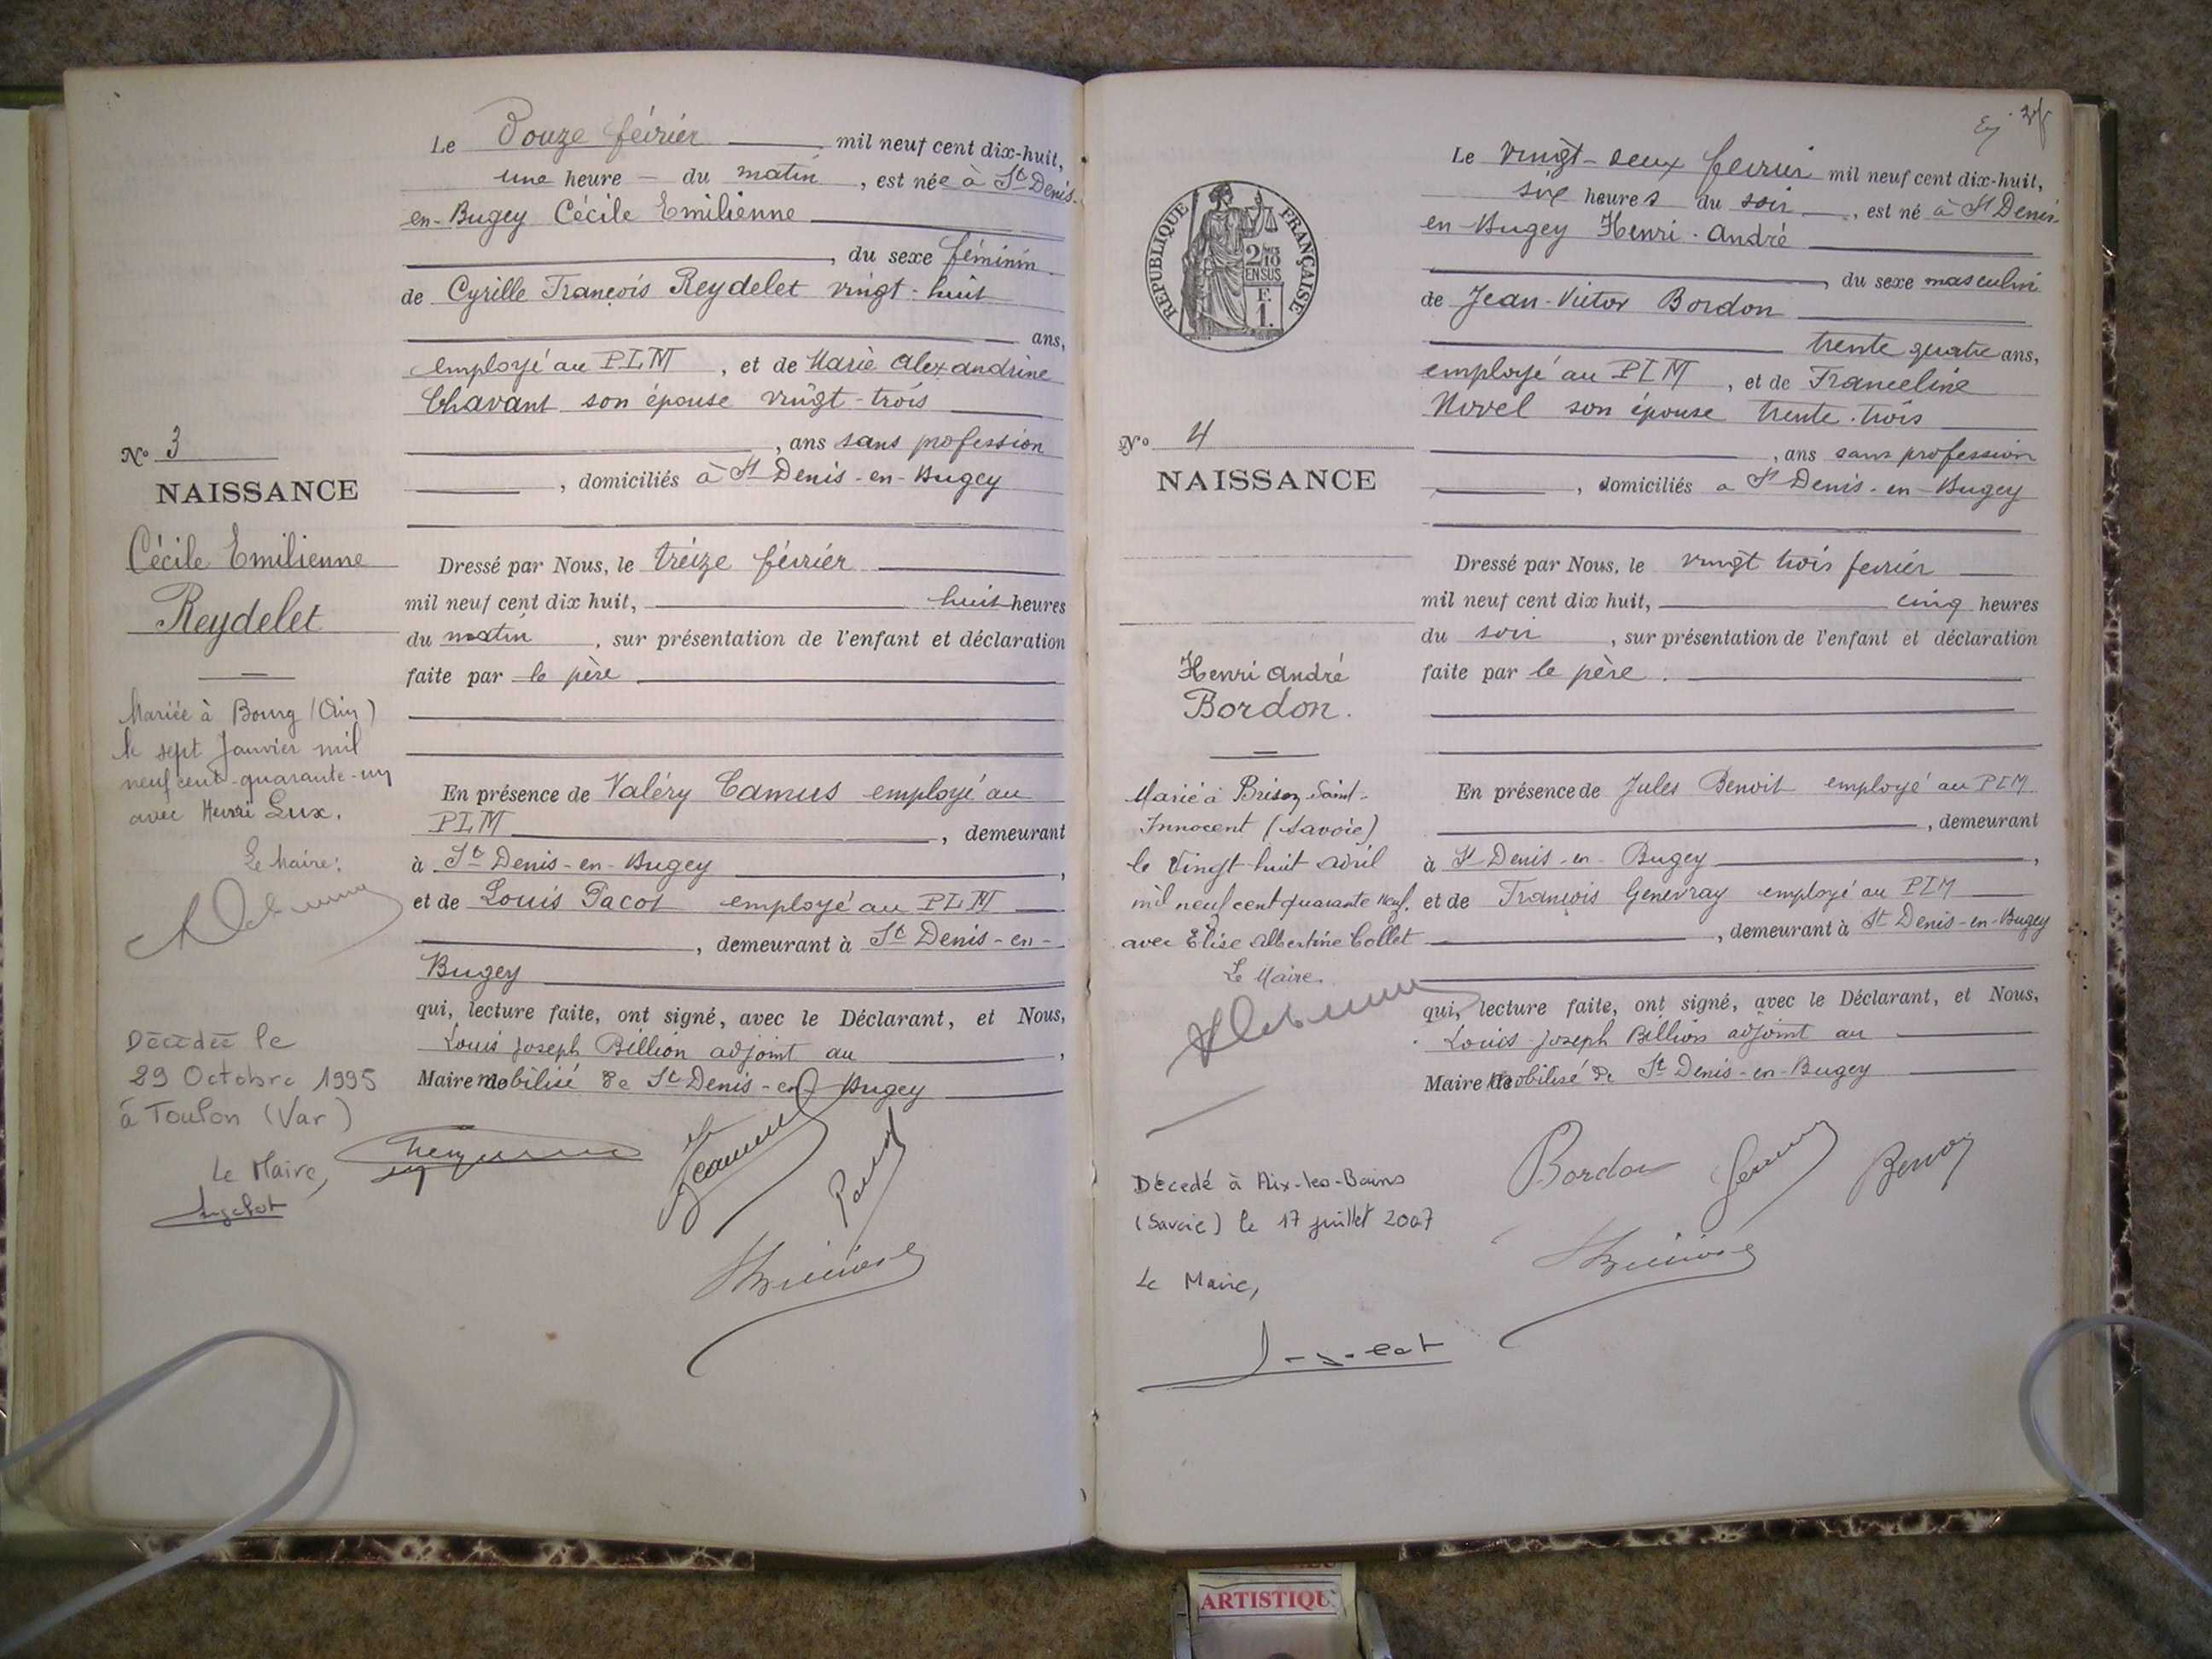 Le Douze février mil neuf cent dix-huit,
une heure du matin, est née à St Denis-
en-Bugey Cécile Emilienne
, du sexe féminin
de Cyrille François Reydelet vingt-huit
ans,
employé au PLM, et de Marie Alexandrine
Chavant son épouse vingt-trois
, ans sans profession
, domiciliés à St Denis-en-Bugey
No 3
NAISSANCE
Cécile Emilienne
Reydelet
Mariée à Bourg (Ain)
le sept Janvier mil
neuf cent-quarante-un
avec Henri Lux.
Le Maire:
Décédée le
29 Octobre 1995
à Toulon (Var)
Le Maire,
Dressé par Nous, le treize février
mil neuf cent dix huit, huit heures
du matin, sur présentation de l'enfant et déclaration
faite par le père
En présence de Valéry Camus employé au
PLM, demeurant
à St Denis-en-Bugey,
et de Louis Pacot employé au PLM
, demeurant à St Denis-en-
Bugey
qui, lecture faite, ont signé, avec le Déclarant, et Nous,
Louis Joseph Billion adjoint au,
Maire mobilisé de St Denis-en-Bugey
Le vingt-deux fevrier mil neuf cent dix-huit,
six heures du soir, est né à St Denis
en-Bugey Henri-André
, du sexe masculin
de Jean-Victor Bordon
trente quatre ans,
employé au PLM, et de Franceline
Novel son épouse trente-trois
, ans sans profession
, domiciliés a St Denis-en-Bugey
RÉPUBLIQUE FRANÇAISE
2/10
EN SUS
F.
1.
No 4
NAISSANCE
Henri André
Bordon.
Marié à Brison Saint-
Innocent (Savoie)
le Vingt huit avril
mil neuf cent quarante neuf.
avec Elise Albertine Collet
Le Maire.
Décédé à Aix-les-Bains
(Savoie) le 17 juillet 2007
Le Maire,
Dressé par Nous, le vingt trois fevrier
mil neuf cent dix huit, cinq heures
du soir, sur présentation de l'enfant et déclaration
faite par le père.
En présence de Jules Benoit employé au PLM
, demeurant
à St Denis-en-Bugey,
et de François Genevray employé au PLM
, demeurant à St Denis-en-Bugey
qui, lecture faite, ont signé, avec le Déclarant, et Nous,
Louis Joseph Billion adjoint au
Maire mobilisé de St Denis-en-Bugey
Bordon
ARTISTIQU